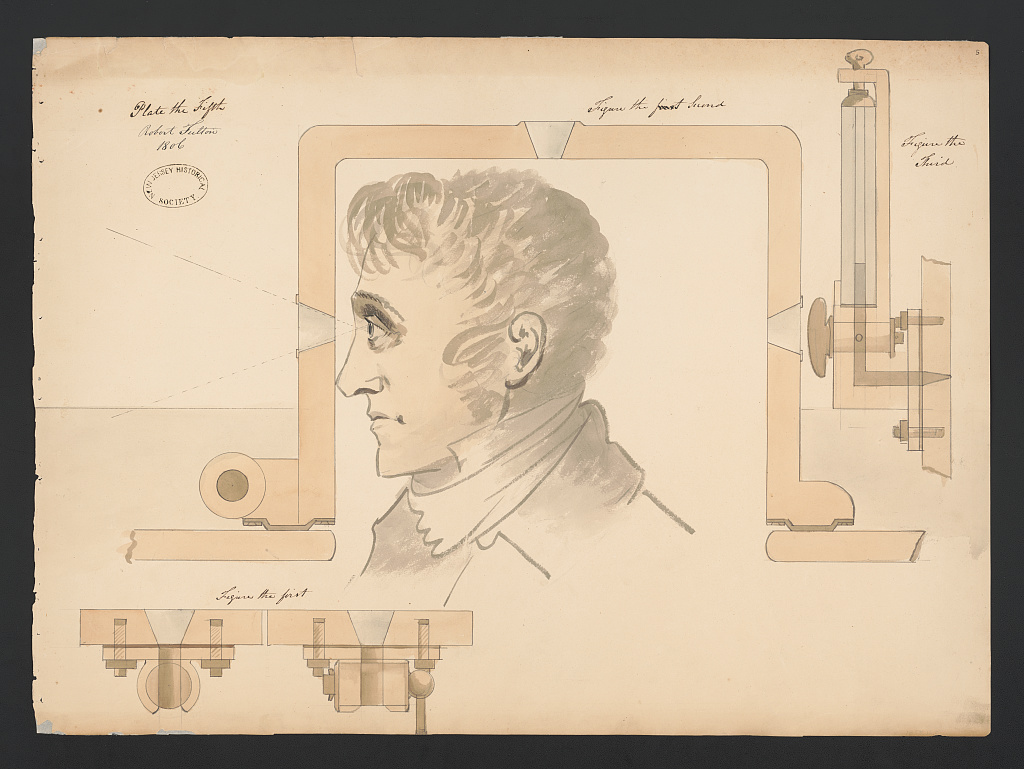 Plate the Fifth
Robert Fulton
1806
NEW JERSEY HISTORICAL
SOCIETY.
Figure the first Second
5
Figure the
Third
Figure the first